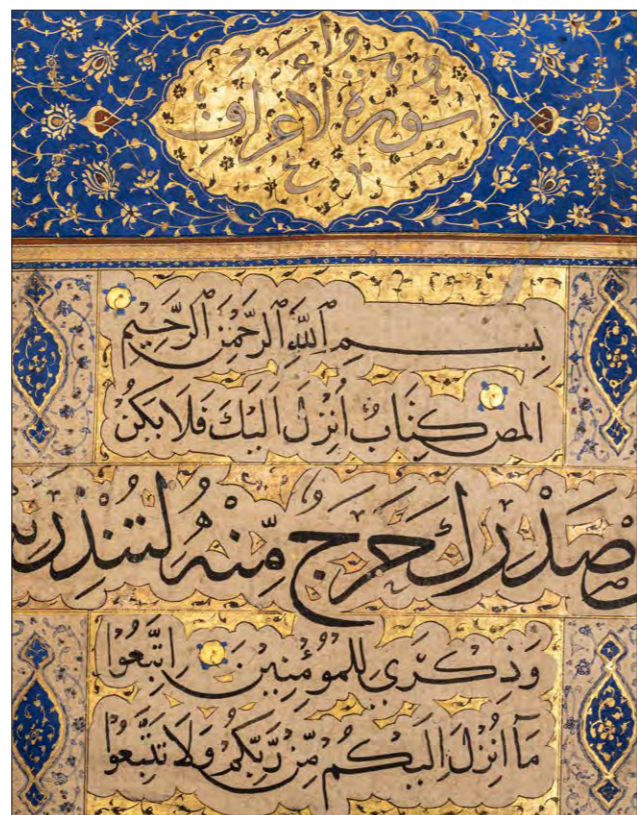 سورة الاعراف
بِسْمِ ٱللَّهِ ٱلرَّحْمٰنِ ٱلرَّحِيمِ
المص كِتَابٌ اُنْزِلَ اِلَيْكَ فَلَا يَكُنْ
صَدْرِكَ حَرَجٌ مِّنْهُ لِتُنْذِرَ
وَذِكْرَى لِلْمُؤْمِنِينَ اِتَّبِعُوا
مَآ اُنْزِلَ اِلَيْكُمْ مِّنْ رَّبِّكُمْ وَلَا تَتَّبِعُوا